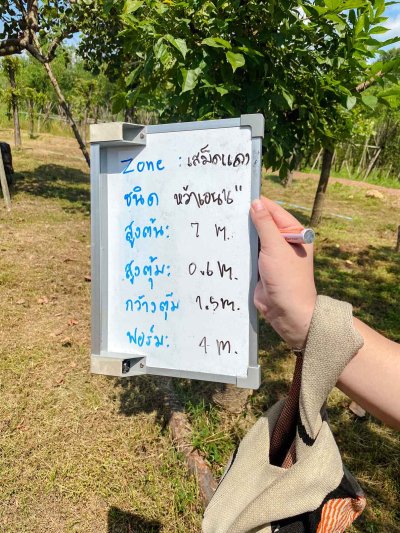 Zone : เสม็ดแดง
ชนิด หว้าเอนN"
สูงต้น: 7 m.
สูงตุ้ม: 0.6 m.
กว้างตุ้ม 1.5 m.
ฟอร์ม: 4 m.